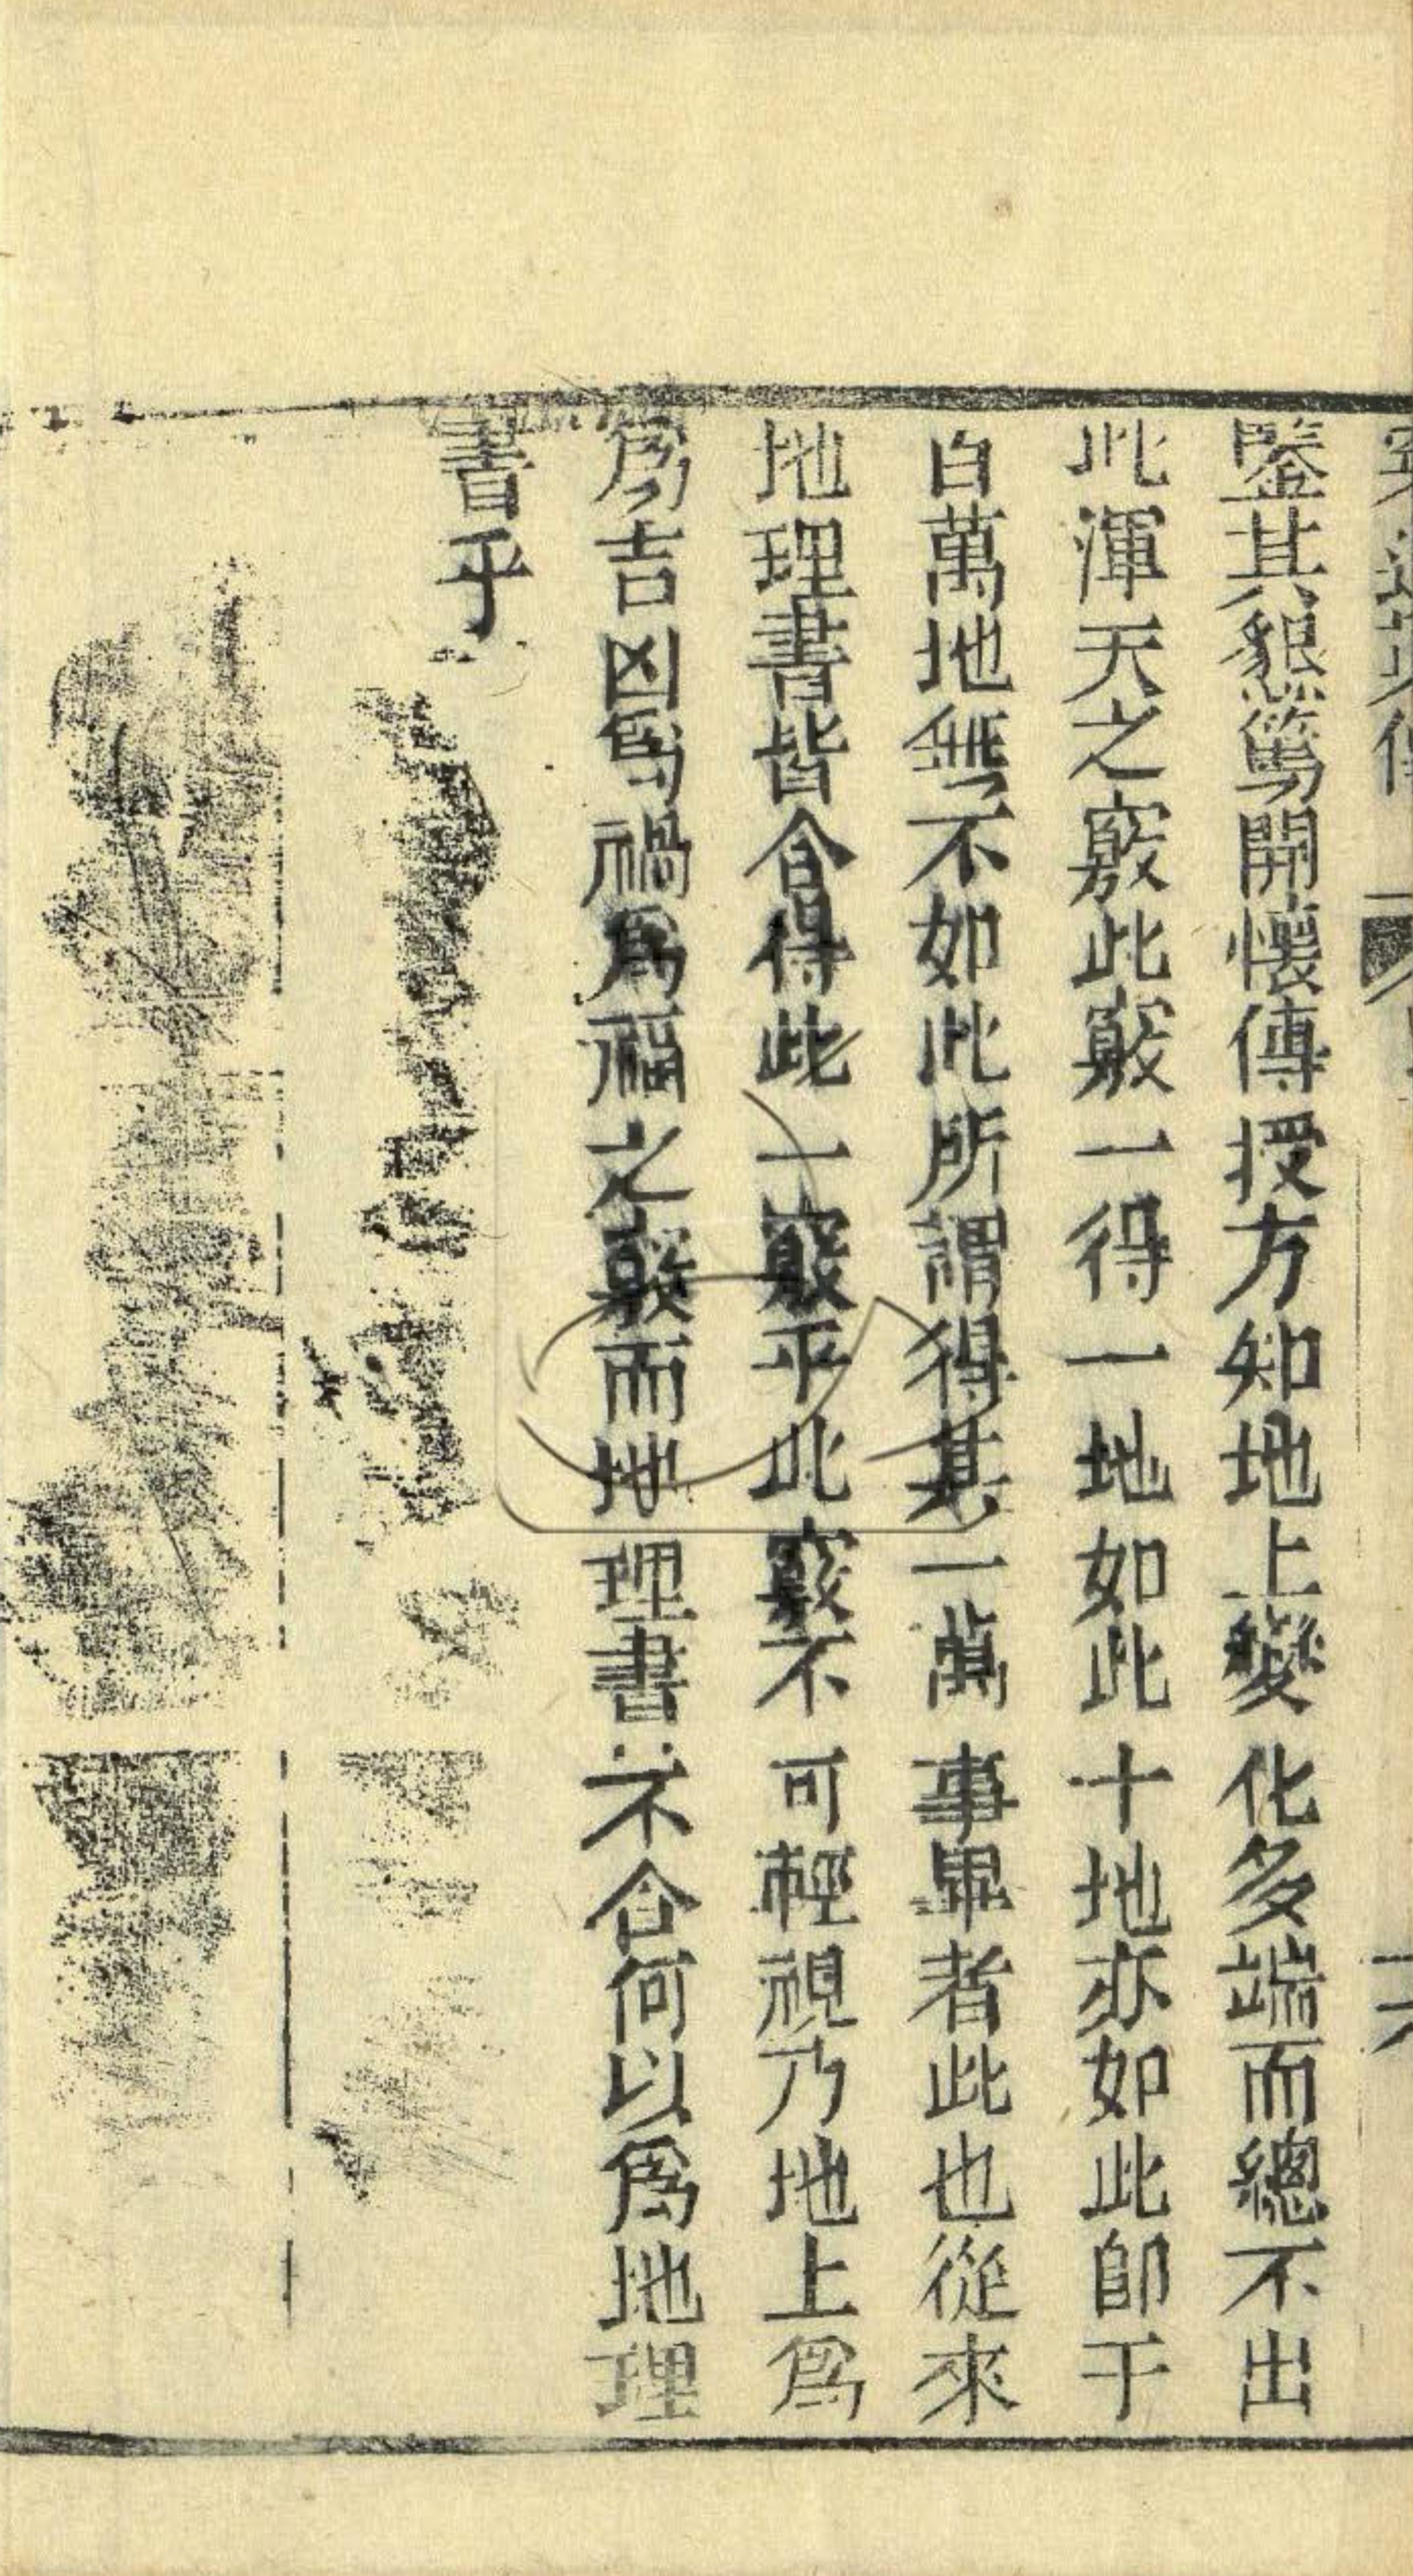 鑒其懇篤開懷傳授方知地上變化多端而總不出
此渾天之竅此竅一得一地如此十地亦如此即千
百萬地無不如此所謂得其一萬事畢者此也從來
地理書皆合得此一竅乎此竅不可輕視乃地上爲
爲吉凶爲禍爲福之竅而地理書不合何以爲地理
書乎